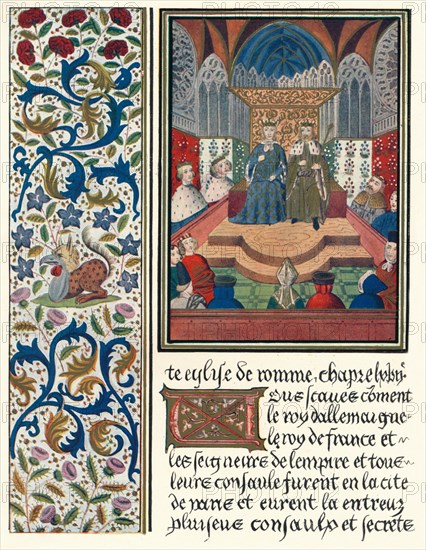 te eglise de romme. chapre
Ous scaues cõment
le roy dallemaigne
le roy de france et
les seigneurs de lempire et tous
leurs consaulx furent en la cite
de et eurent la entreux
pluiseus consaulx et secrets